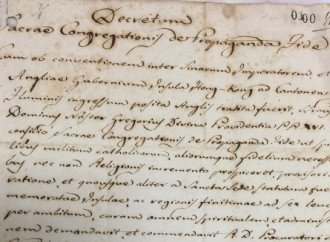 0100
Decretum
Sacrae Congregationis de Propaganda Fide
Cum ob conventionem inter Sinarum Imperatorem et
Angliae Gubernium Insula Hong-Kong ad Cantonem
Fluminis ingressum posita Anglis tradita fuerit,
Dominus Noster Gregorius Divina Providentia P.P. XVI
consilio Sacrae Congregationis de Propaganda Fide ut spi
libus militum catholicorum, aliorumque fidelium neces
bus nec non Religionis incremento prospiceret, provisor
ratione, et quousque aliter a Sancta Sede statutum fu
memoratae Insulae ac regionis finitimae ad sex leu
per ambitum, curam omnem spiritualem, et admini
nem demandavit et commendavit A. D.